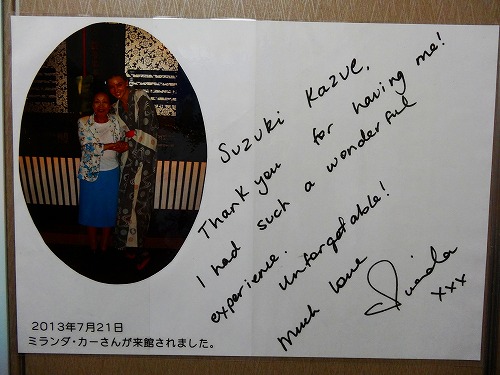 Suzuki Kazue,
Thank you for having me!
I had such a wonderful
experience.
Unforgetable!
Much love
Miranda
xxx
2013年7月21日
ミランダ・カーさんが来館されました。